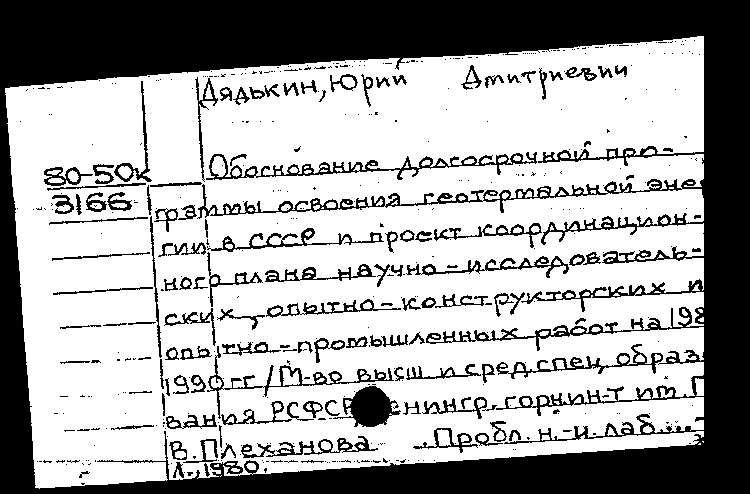 Дядькин, Юрий Дмитриевич
80-50к
3166
Обоснование долгосрочной про-
граммы освоения геотермальной эне
гии в СССР и проект координацион-
ного плана научно-исследователь-
ских, опытно-конструкторских и
опытно-промышленных работ на 198
1990 гг / М-во высш и сред. спец. образ
вания РСФСР енингр. горн ин-т им. Г
В. Плеханова Пробл. н.-и. лаб...
Л., 1980.